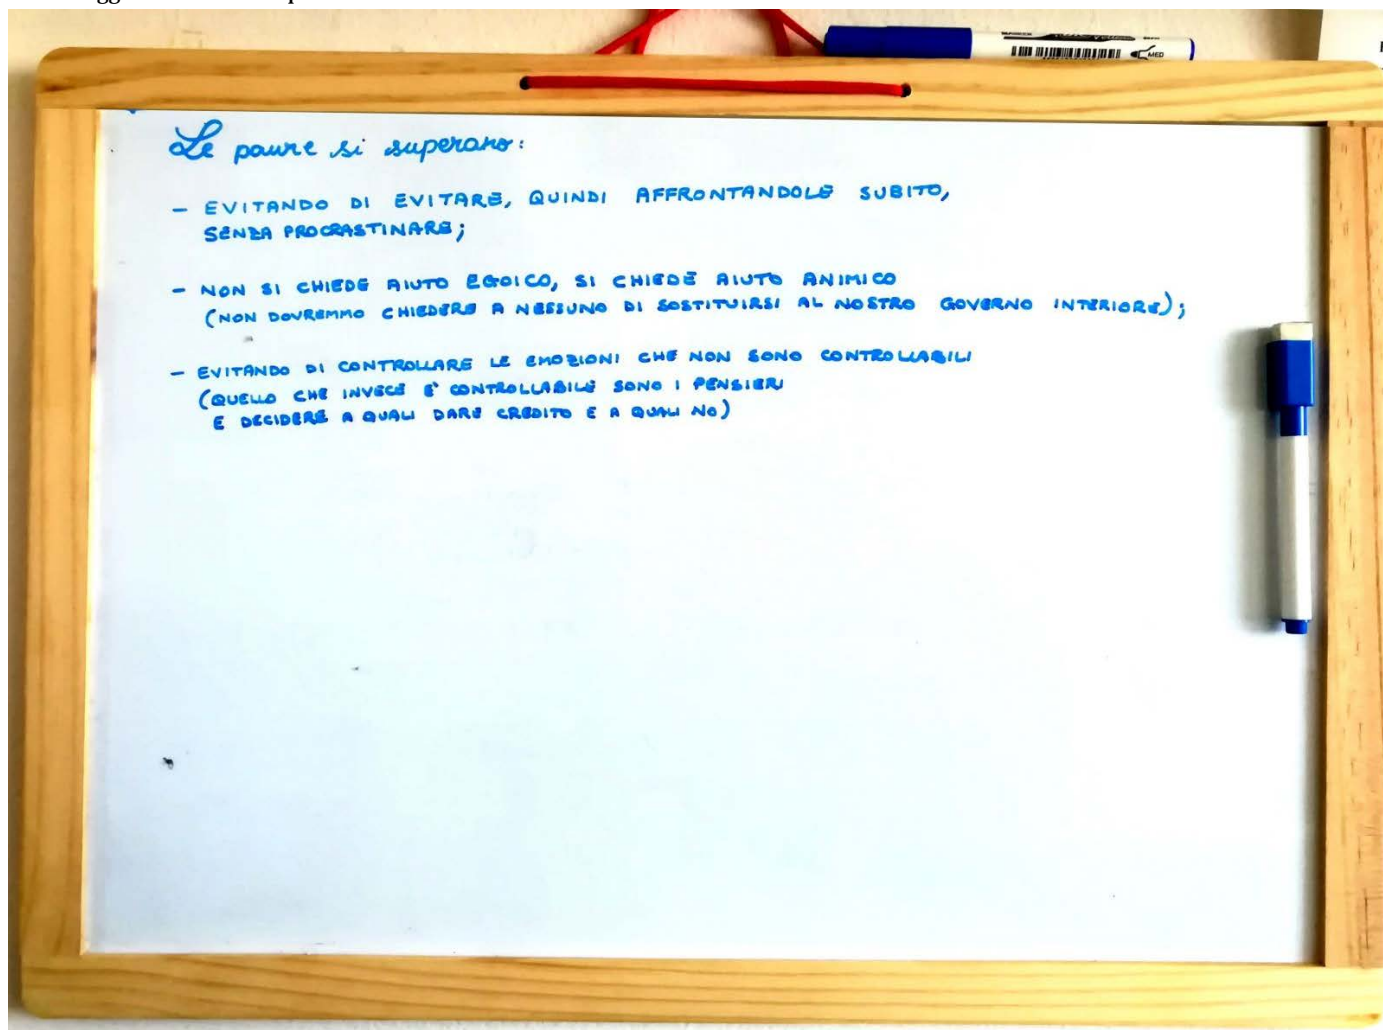 Le paure si superano:
- EVITANDO DI EVITARE, QUINDI AFFRONTANDOLE SUBITO,
SENZA PROCRASTINARE;
- NON SI CHIEDE AIUTO EGOICO, SI CHIEDE AIUTO ANIMICO
(NON DOVREMMO CHIEDERE A NESSUNO DI SOSTITUIRSI AL NOSTRO GOVERNO INTERIORE);
- EVITANDO DI CONTROLLARE LE EMOZIONI CHE NON SONO CONTROLLABILI
(QUELLO CHE INVECE E' CONTROLLABILE SONO I PENSIERI
E DECIDERE A QUALI DARE CREDITO E A QUALI NO)
MED